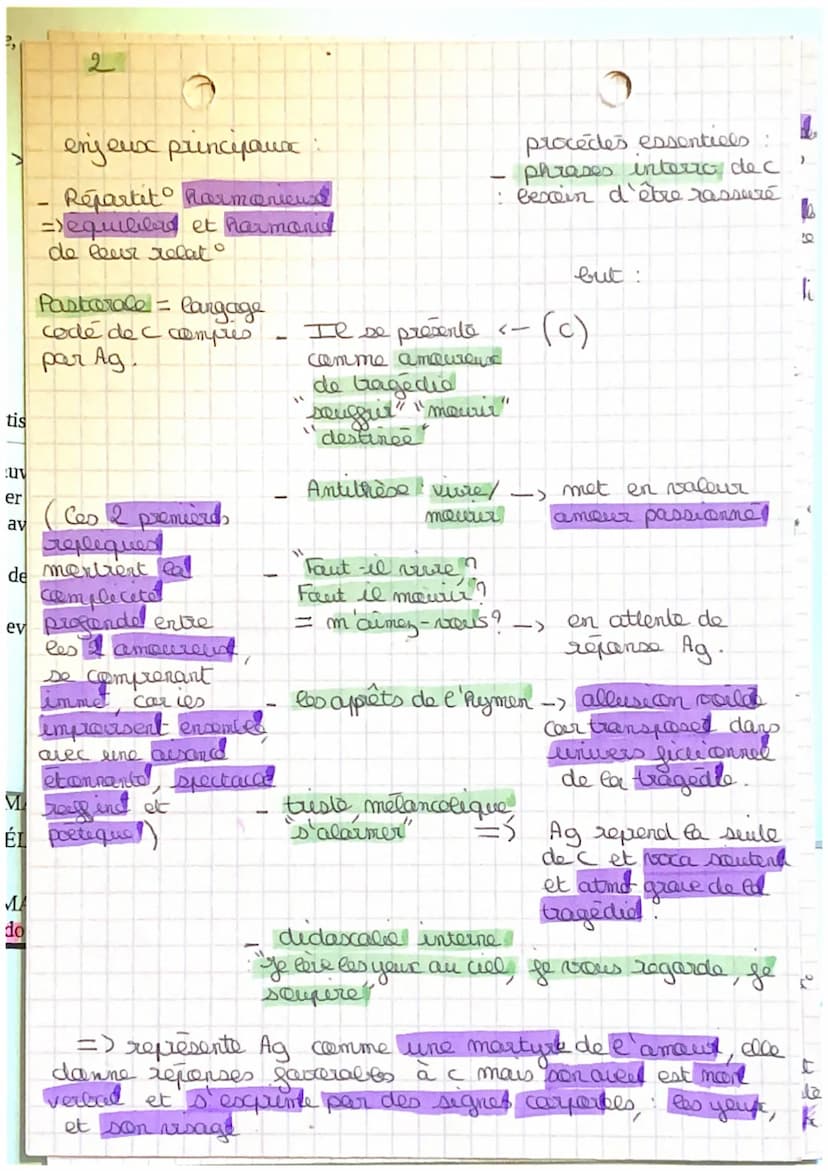 2
enjeux principaux :
- Répartit° harmonieuse
=> équilibre et harmonie
de leur relat°
Pastorale = langage
codé de C compris
par Ag.
( Ces 2 premières
répliques
montrent la
complicité
profonde entre
les 2 amoureux,
se comprenant
immé, car ies
improvisent ensemble
avec une aisance
étonnante, spectacle
raffiné et
poétique )
procédés essentiels :
- phrases interro de C
: besoin d'être rassuré
but :
- Il se présente <- (C)
comme amoureux
de tragédie
"souffrir" "mourir"
"destinée"
- Antithèse : vivre/ -> met en valeur
mourir amour passionné
- "Faut-il vivre ?
Faut il mourir" ?
= m'aimez-vous? -> en attente de
réponse Ag.
- les apprêts de l'hymen -> allusion voilée
car transposé dans
univers fictionnel
de la tragédie.
- triste, mélancolique,
"s'alarmer" => Ag reprend la suite
de C et voca soutenu
et atmo grave de la
tragédie.
- didascalie interne
: "Je lève les yeux au ciel, je vous regarde, je
soupire"
=> représente Ag comme une martyre de l'amour, elle
donne réponses favorables à C mais son aveu est non
verbal et s'exprime par des signes corporels, : les yeux,
et son visage
tis
euv
er
av
de
ev
MA
ÉL
MA
do